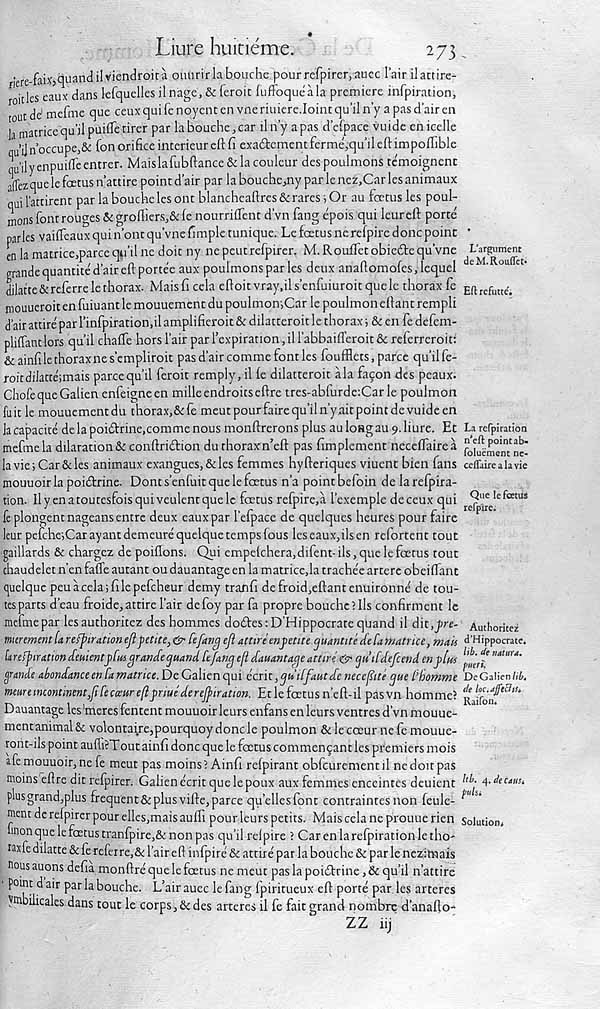 Liure huitiéme. 273
riere-faix, quand il viendroit à ouurir la bouche pour respirer, auec l'air il attire-
roit les eaux dans lesquelles il nage, & seroit suffoqué à la premiere inspiration,
tout de mesme que ceux qui se noyent en vne riuiere. Ioint qu'il n'y a pas d'air en
la matrice qu'il puisse tirer par la bouche, car il n'y a pas d'espace vuide en icelle
qu'il n'occupe, & son orifice interieur est si exactement fermé, qu'il est impossible
qu'il y en puisse entrer. Mais la substance & la couleur des poulmons témoignent
assez que le fœtus n'attire point d'air par la bouche, ny par le nez, Car les animaux
qui l'attirent par la bouche les ont blancheastres & rares; Or au fœtus les poul-
mons sont rouges & grossiers, & se nourrissent d'vn sang épois qui leur est porté
par les vaisseaux qui n'ont qu'vne simple tunique. Le fœtus ne respire donc point
en la matrice, parce qu'il ne doit ny ne peut respirer. M. Rousset obiecte qu'vne
grande quantité d'air est portée aux poulmons par les deux anastomoses, lequel
dilatte & reserre le thorax. Mais si cela estoit vray, il s'ensuiuroit que le thorax se
mouueroit en suiuant le mouuement du poulmon; Car le poulmon estant rempli
d'air attiré par l'inspiration, il amplifieroit & dilatteroit le thorax; & en se desem-
plissant lors qu'il chasse hors l'air par l'expiration, il l'abbaisseroit & reserreroit:
& ainsi le thorax ne s'empliroit pas d'air comme font les soufflets, parce qu'il se-
roit dilatté; mais parce qu'il seroit remply, il se dilatteroit à la façon des peaux.
Chose que Galien enseigne en mille endroits estre tres-absurde: Car le poulmon
suit le mouuement du thorax, & se meut pour faire qu'il n'y ait point de vuide en
la capacité de la poictrine, comme nous monstrerons plus au long au 9. liure. Et
mesme la dilaration & constriction du thorax n'est pas simplement necessaire à
la vie; Car & les animaux exangues, & les femmes hysteriques viuent bien sans
mouuoir la poictrine. Dont s'ensuit que le fœtus n'a point besoin de la respira-
tion. Il y en a toutesfois qui veulent que le fœtus respire, à l'exemple de ceux qui
se plongent nageans entre deux eaux par l'espace de quelques heures pour faire
leur pesche; Car ayant demeuré quelque temps sous les eaux, ils en resortent tout
gaillards & chargez de poissons. Qui empeschera, disent-ils, que le fœtus tout
chaudelet n'en fasse autant ou dauantage en la matrice, la trachée artere obeissant
quelque peu à cela; si le pescheur demy transi de froid, estant enuironné de tou-
tes parts d'eau froide, attire l'air de soy par sa propre bouche? Ils confirment le
mesme par les authoritez des hommes doctes: D'Hippocrate quand il dit, pre-
mierement la respiration est petite, & le sang est attiré en petite quantité de la matrice, mais
la respiration deuient plus grande quand le sang est dauantage attiré & qu'il descend en plus
grande abondance en la matrice. De Galien qui écrit, qu'il faut de necessité que l'homme
meure incontinent, si le cœur est priué de respiration. Et le fœtus n'est-il pas vn homme?
Dauantage les meres sentent mouuoir leurs enfans en leurs ventres d'vn mouue-
ment animal & volontaire, pourquoy donc le poulmon & le cœur ne se mouue-
ront-ils point aussi? Tout ainsi donc que le fœtus commençant les premiers mois
à se mouuoir, ne se meut pas moins? Ainsi respirant obscurement il ne doit pas
moins estre dit respirer. Galien écrit que le poux aux femmes enceintes deuient
plus grand, plus frequent & plus viste, parce qu'elles sont contraintes non seule-
ment de respirer pour elles, mais aussi pour leurs petits. Mais cela ne prouue rien
sinon que le fœtus transpire, & non pas qu'il respire? Car en la respiration le tho-
rax se dilatte & se reserre, & l'air est inspiré & attiré par la bouche & par le nez: mais
nous auons desià monstré que le fœtus ne meut pas la poictrine, & qu'il n'attire
point d'air par la bouche. L'air auec le sang spiritueux est porté par les arteres
vmbilicales dans tout le corps, & des arteres il se fait grand nombre d'anasto-
ZZ iij
L'argument
de M. Rousset.
Est refutté.
La respiration
n'est point ab-
soluëment ne-
cessaire à la vie
Que le fœtus
respire.
Authoritez
d'Hippocrate.
lib. de natura.
pueri.
De Galien lib.
de loc. affectis.
Raison.
lib. 4. de caus.
puls.
Solution.